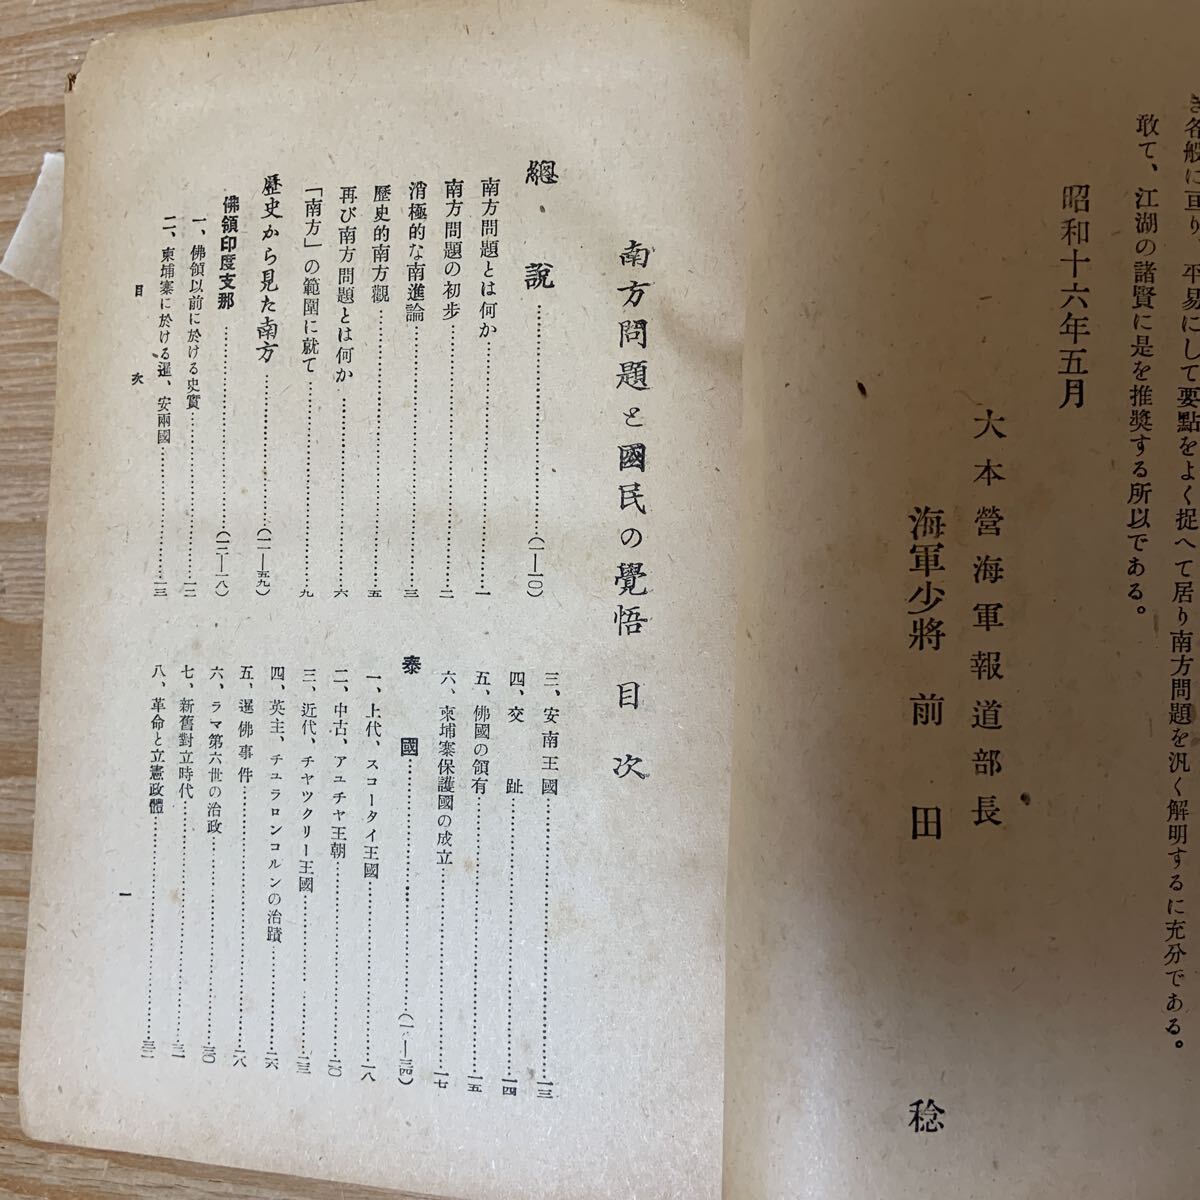 き各般に亘り、平易にして要點をよく捉へて居り南方問題を汎く解明するに充分である。
敢て、江湖の諸賢に是を推奬する所以である。
昭和十六年五月
大本營海軍報道部長
海軍少將 前田 稔
南方問題と國民の覺悟 目次
總説……(一—一〇)
南方問題とは何か……一
南方問題の初步……二
消極的な南進論……三
歷史的南方觀……五
再び南方問題とは何か……六
「南方」の範圍に就て……九
歷史から見た南方……(一一—五九)
佛領印度支那……(一二—一八)
一、佛領以前に於ける史實……一二
二、柬埔寨に於ける暹、安兩國……一三
三、安南王國……一三
四、交趾……一四
五、佛國の領有……一五
六、柬埔寨保護國の成立……一七
泰國……
一、上代、スコータイ王國……一八
二、中古、アユチヤ王朝……二〇
三、近代、チヤツクリー王國……二三
四、英主、チユラロンコルンの治蹟……二六
五、暹佛事件……二八
六、ラマ第六世の治政……三〇
七、新舊對立時代……三一
八、革命と立憲政體……三二
目次
一